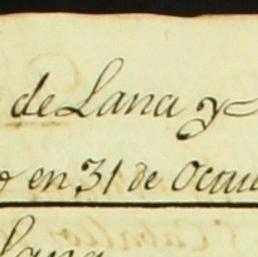 de Lana y
en 31 de
Lana